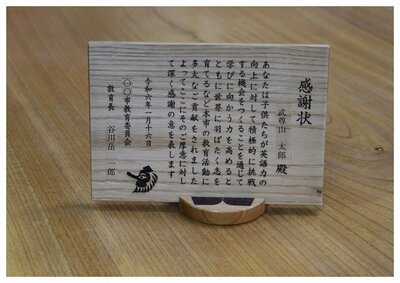 感謝状
武尊山 太郎 殿
あなたは子供たちが英語力の
向上に対して積極的に挑戦
する機会をつくることを通じて
学びに向かう力を高めると
ともに世界に羽ばたく志を
育てるなど本市の教育活動に
多大なご貢献をされました
よってここにそのご厚意に対し
て深く感謝の意を表します
令和六年一月十六日
〇〇市教育委員会
教育長 谷川岳 一郎